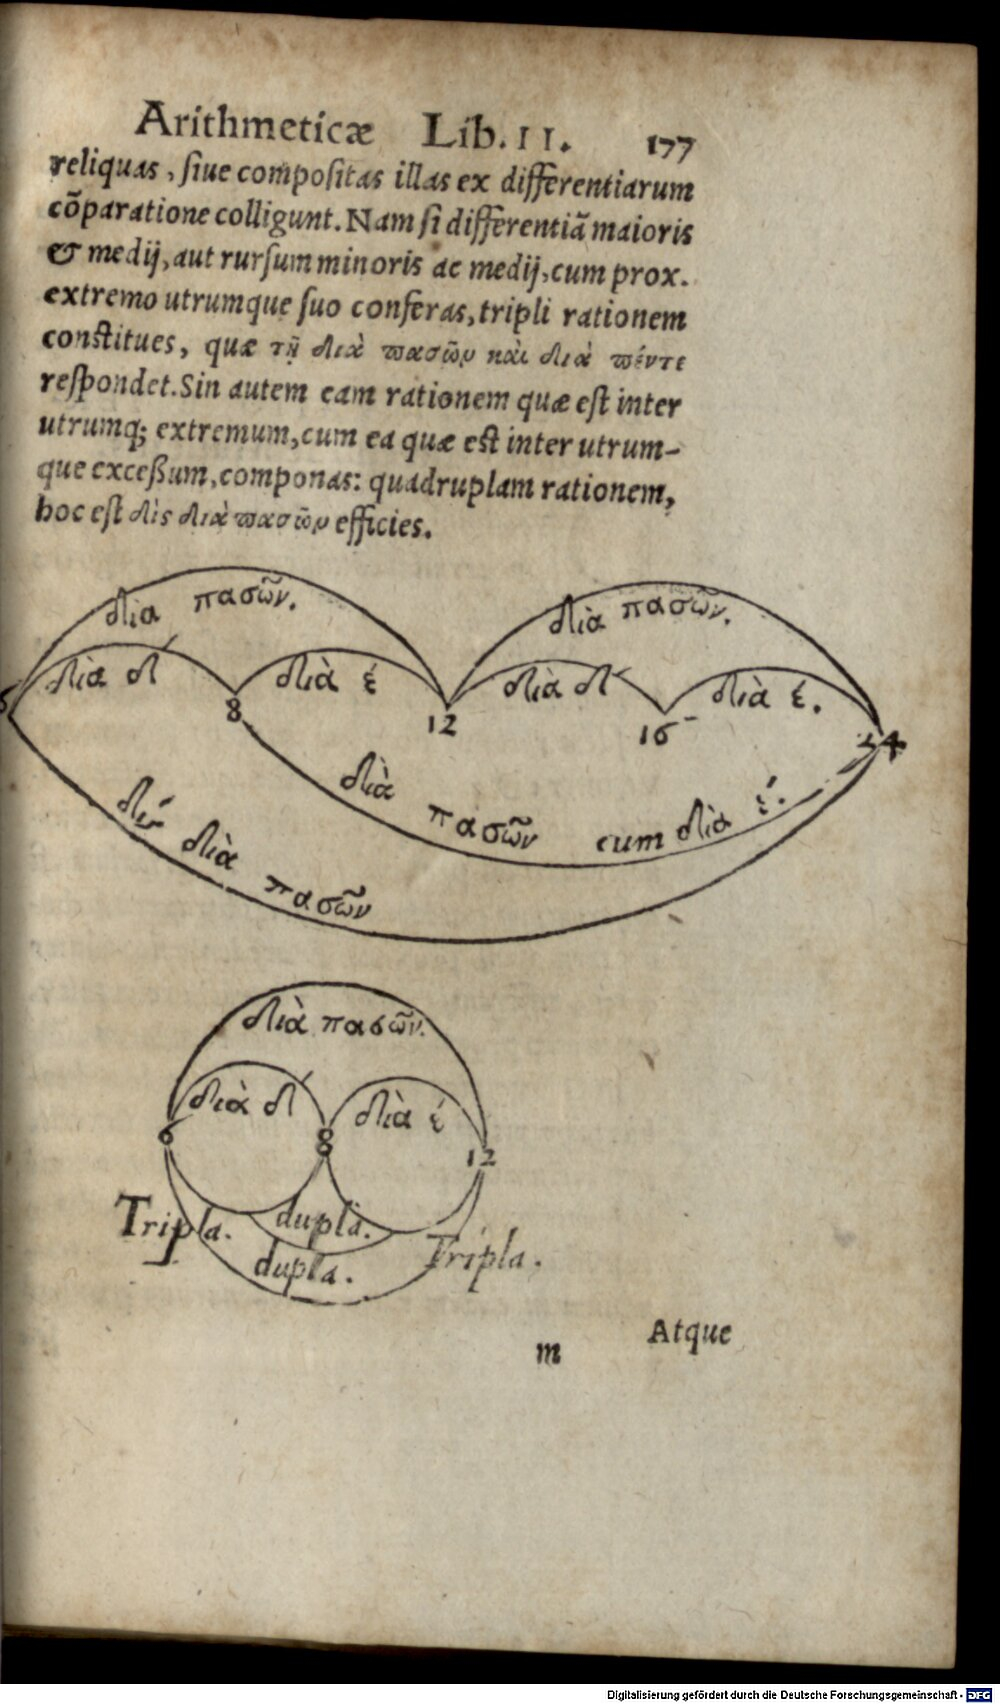 Arithmeticæ Lib. II. 177
reliquas, ſiue compoſitas illas ex differentiarum
cõparatione colligunt. Nam ſi differentiã maioris
& medij, aut rurſum minoris ac medij, cum prox.
extremo utrumque ſuo conferas, tripli rationem
conſtitues, quæ τῇ διὰ πασῶν καὶ διὰ πέντε
reſpondet. Sin autem eam rationem quæ eſt inter
utrumq; extremum, cum ea quæ eſt inter utrum-
que exceßum, componas: quadruplam rationem,
hoc eſt δὶς διὰ πασῶν efficies.
δια πασῶν. διὰ πασῶν.
διὰ δ´ διὰ έ διὰ δ´ διὰ έ.
6 8 12 16 24
διὰ πασῶν cum διὰ έ.
δίς διὰ πασῶν
διὰ πασῶν.
διὰ δ´ διὰ έ
6 8 12
Tripla. dupla. Tripla.
dupla.
m Atque
Digitalisierung gefördert durch die Deutsche Forschungsgemeinschaft - DFG